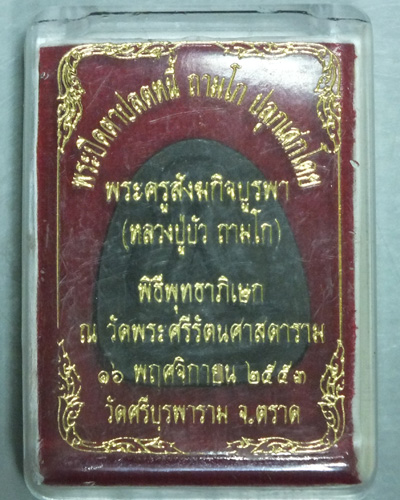 พระปิดตาปลดหนี้ ถามโก ปลุกเสกโดย
พระครูสังฆกิจบูรพา
(หลวงปู่บัว ถามโก)
พิธีพุทธาภิเษก
ณ วัดพระศรีรัตนศาสดาราม
๑๖ พฤศจิกายน ๒๕๕๓
วัดศรีบุรพาราม จ.ตราด